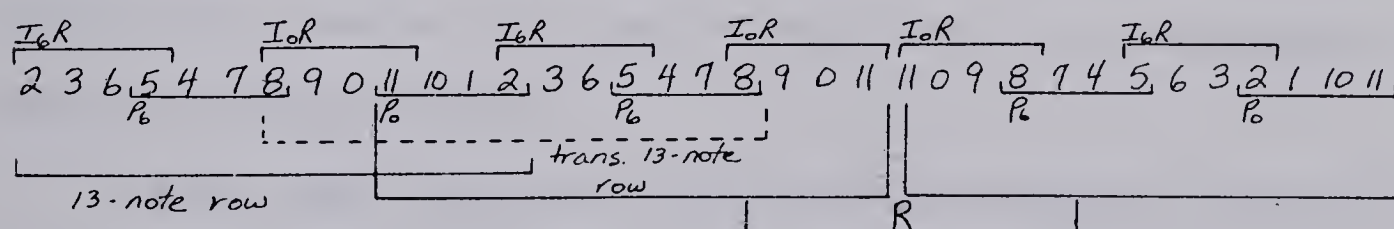 I₆R I₀R I₆R I₀R I₀R I₆R
2 3 6 5 4 7 8 9 0 11 10 1 2 3 6 5 4 7 8 9 0 11 11 0 9 8 7 4 5 6 3 2 1 10 11
P₆ P₀ P₆ P₆ P₀
trans. 13-note
row
13-note row
R